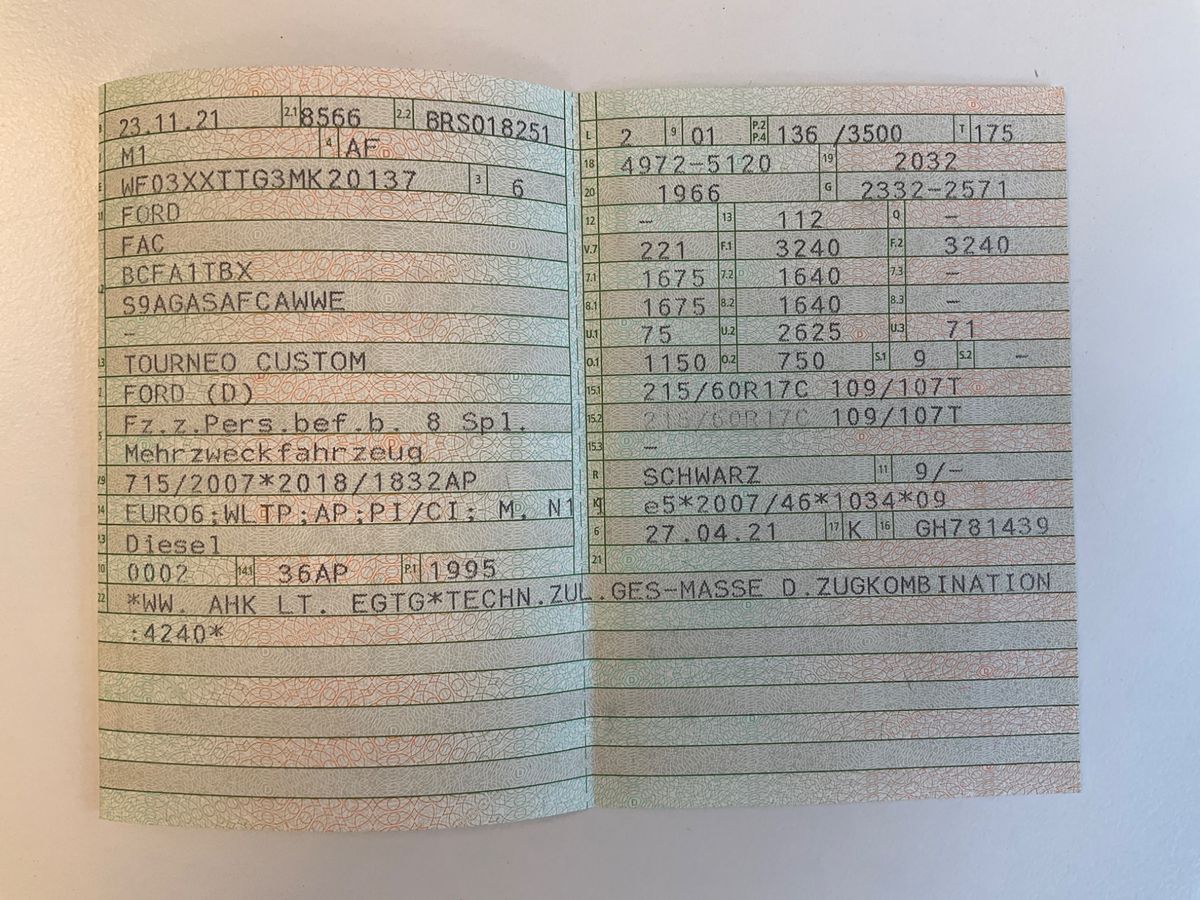 B 23.11.21 2.1 8566 2.2 BRS018251
M1 4 AF
WF03XXTTG3MK20137 3 6
FORD
FAC
BCFA1TBX
S9AGASAFCAWWE
–
TOURNEO CUSTOM
FORD (D)
Fz.z.Pers.bef.b. 8 Spl.
Mehrzweckfahrzeug
715/2007*2018/1832AP
EURO6;WLTP;AP;PI/CI; M, N1
Diesel
0002 14.1 36AP P.1 1995
22 *WW. AHK LT. EGTG*TECHN.ZUL.GES-MASSE D.ZUGKOMBINATION
:4240*
L 2 9 01 P.2 P.4 136 /3500 T 175
18 4972-5120 19 2032
20 1966 G 2332-2571
12 – 13 112 Q –
V.7 221 F.1 3240 F.2 3240
7.1 1675 7.2 1640 7.3 –
8.1 1675 8.2 1640 8.3 –
U.1 75 U.2 2625 U.3 71
O.1 1150 O.2 750 S.1 9 S.2 –
15.1 215/60R17C 109/107T
15.2 215/60R17C 109/107T
15.3 –
R SCHWARZ 11 9/–
K e5*2007/46*1034*09
6 27.04.21 17 K 16 GH781439
21